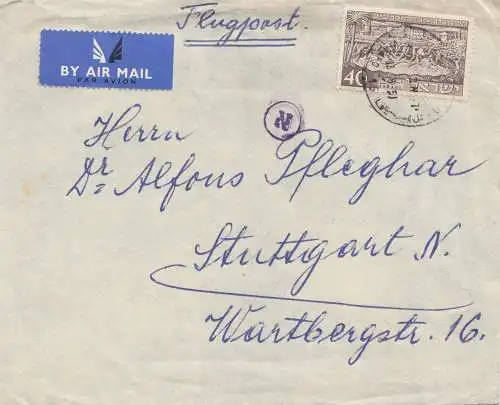 Flugpost.
BY AIR MAIL
PAR AVION
40
ISRAEL
Herrn
Dr. Alfons Pfleghar
Stuttgart N.
Wartbergstr. 16.